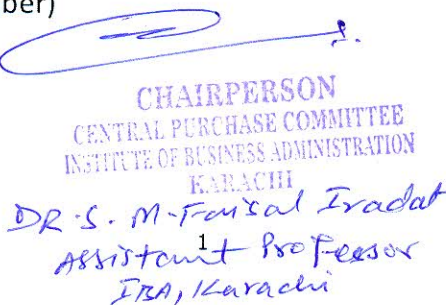 ber)
CHAIRPERSON
CENTRAL PURCHASE COMMITTEE
INSTITUTE OF BUSINESS ADMINISTRATION
KARACHI
DR. S. M. Faisal Iradat
Assistant Professor
1
IBA, Karachi